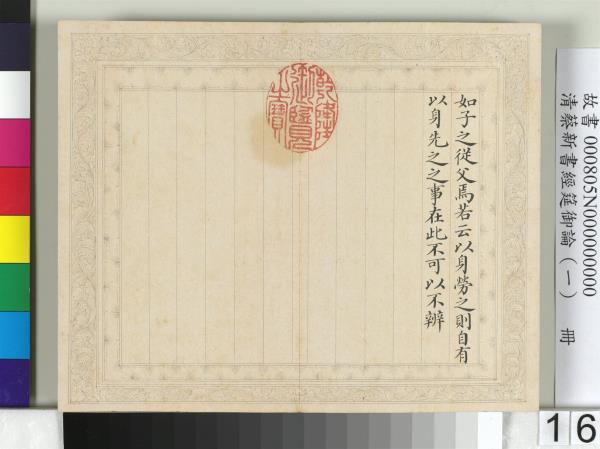 如子之從父焉若云以身勞之則自有
以身先之之事在此不可以不辨
乾隆
御覽
之寶
故書 000805N000000000
清蔡新書經筵御論（一） 冊
16